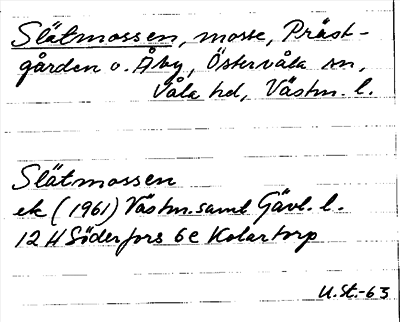 Slätmossen, mosse, Präst-
gården o. Åby, Östervåla sn,
Våla hd, Västm. l.
Slätmossen
ek (1961) Västm. samt Gävl. l.
12 H Söderfors 6e Kolartorp
U.St.-63